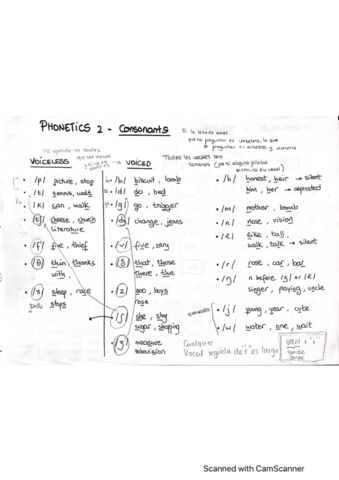 PHONETICS 2 - Consonants
Si la letra de antes
Me aprendo las voiceless
VOICELESS → VOICED
Todas las vocales son
sonoras
/p/ picture, stop
/t/ tennis, walt
/k/ can, walk
/tʃ/ choose, church
literature
/f/ five, thief
/θ/ thin, thanks
with
/s/ sleep, rose
stops
/b/ biscuit, lamb
/d/ do, bed
/g/ go, trigger
/dʒ/ change, jeans
/v/ five, very
/ð/ that, those
there, the
/z/ zoo, boys
rose
/ʃ/ she, shy
sugar, shopping
/ʒ/ measure
television
/h/ honest, heir → silent
him, her → aspirated
/m/ mother, bomb
/n/ nose, vision
/l/ like, tall,
walk, talk → silent
/r/ rose, car, bar
/ŋ/ n before /g/ or /k/
singer, playing, uncle
/j/ young, year, cute
/w/ water, one, wait
Cualquier
Vocal seguida de "r" es larga
vocal + "r"
sonido
largo
Scanned with CamScanner